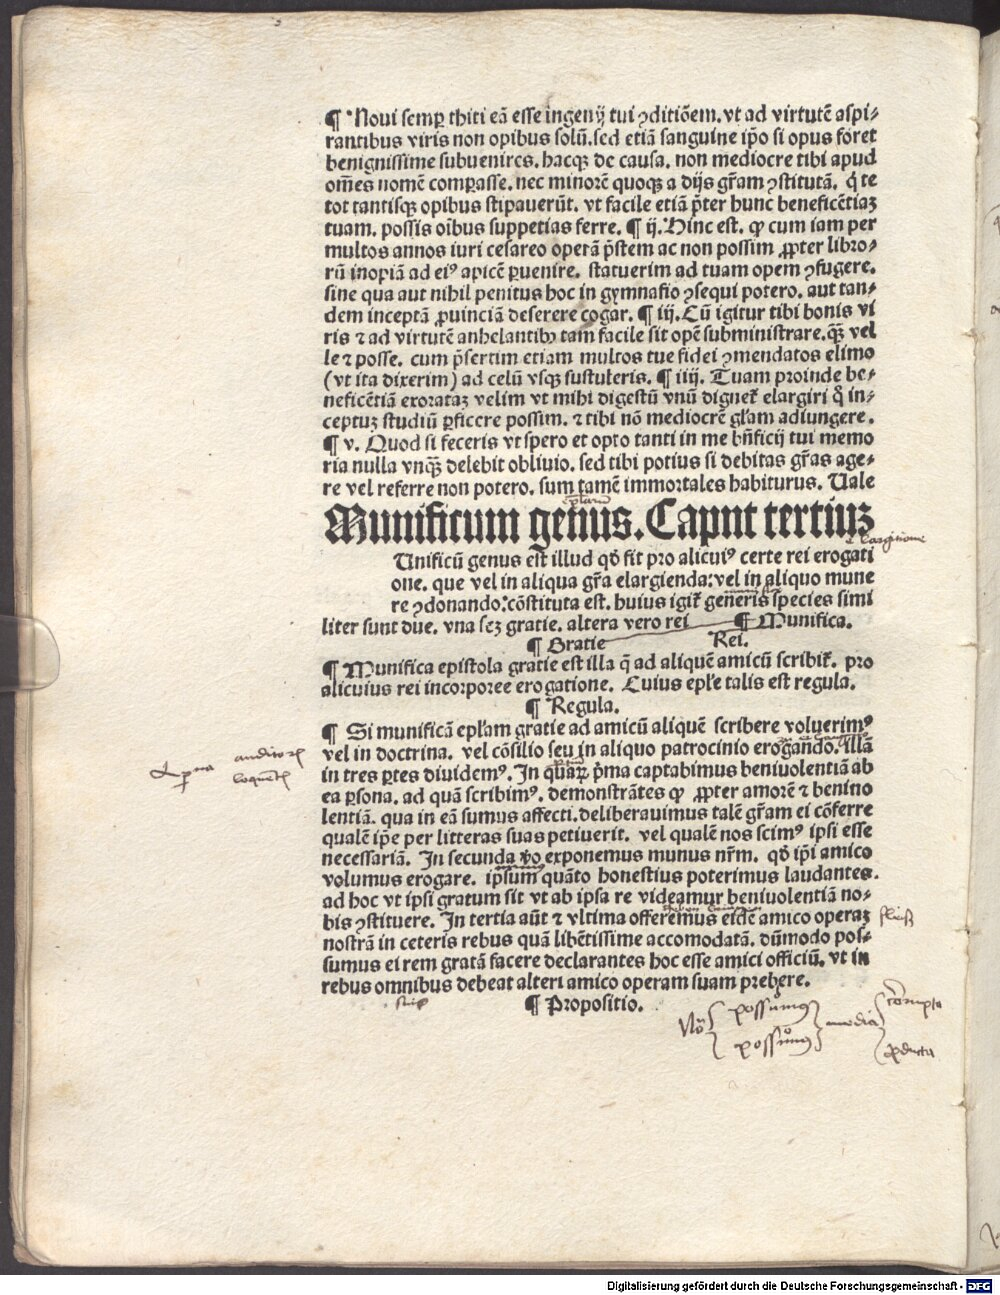 ¶ Noui semꝑ thiti eā esse ingenij tui ꝯditiōem. vt ad virtutē aspi-
rantibus viris non opibus solū. sed etiā sanguine ip̄o si opus foret
benignissime subuenires. hacqꝫ de causa. non mediocre tibi apud
om̄es nomē comꝑasse. nec minorē quoqꝫ a dijs gr̄am ꝯstitutā. q̄ te
tot tantisqꝫ opibus stipauerūt. vt facile etiā p̄ter hunc beneficētiaꝫ
tuam. possis oībus suppetias ferre. ¶ ij. Hinc est. ꝙ cum iam per
multos annos iuri cesareo operā p̄stem ac non possim ꝓpter libro-
rū inopiā ad eiꝰ apicē ꝑuenire. statuerim ad tuam opem ꝯfugere.
sine qua aut nihil penitus hoc in gymnasio ꝯsequi potero. aut tan-
dem inceptā ꝓuinciā deserere cogar. ¶ iij. Cū igitur tibi bonis vi
ris ⁊ ad virtutē anhelantibꝫ tam facile sit opē subministrare. qꝫ̄ vel
le ⁊ posse. cum p̄sertim etiam multos tue fidei ꝯmendatos elimo
(vt ita dixerim) ad celū vsqꝫ sustuleris. ¶ iiij. Tuam proinde be-
neficētiā exorataꝫ velim vt mihi digestū vnū dignet᷑ elargiri q̊ in-
ceptuꝫ studiū ꝑficere possim. ⁊ tibi nō mediocrē gl̄am adiungere.
¶ v. Quod si feceris vt spero et opto tanti in me bn̄ficij tui memo
ria nulla vnqꝫ̄ delebit obliuio. sed tibi potius si debitas gr̄as age-
re vel referre non potero. sum tamē immortales habiturus. Uale
Munificum genus. Capnt tertiuꝫ
Unificū genus est illud qd̄ fit pro alicuiꝰ certe rei erogati
one. que vel in aliqua gr̄a elargienda: vel in aliquo mune
re ꝯdonando: cōstituta est. huius igit᷑ generis species simi
liter sunt due. vna seꝫ gratie. altera vero rei ¶ Munifica.
¶ Gratie Rei.
¶ Munifica epistola gratie est illa q̄ ad aliquē amicū scribit᷑. pro
alicuius rei incorporee erogatione. Cuius epl̄e talis est regula.
¶ Regula.
¶ Si munificā epl̄am gratie ad amicū aliquē scribere voluerimꝰ
vel in doctrina. vel cōsilio seu in aliquo patrocinio erogando. Illā
in tres ꝑtes diuidemꝰ. In quaꝝ p̄ma captabimus beniuolentiā ab
ea ꝑsona. ad quā scribimꝰ. demonstrātes ꝙ ꝓpter amorē ⁊ beniuo
auditorē
loquētē
lentiā. qua in eā sumus affecti. deliberauimus talē gr̄am ei cōferre
qualē ip̄e per litteras suas petiuerit. vel qualē nos scimꝰ ipsi esse
necessariā. In secunda v̊o exponemus munus nr̄m. qd̄ ip̄i amico
volumus erogare. ipsum quāto honestius poterimus laudantes.
ad hoc vt ipsi gratum sit vt ab ipsa re videamur beniuolentiā no-
bis ꝯstituere. In tertia aūt ⁊ vltima offeremus eidē amico operaꝫ
nostrā in ceteris rebus quā libētissime accomodatā. dūmodo pos-
sumus ei rem gratā facere declarantes hoc esse amici officiū. vt in
rebus omnibus debeat alteri amico operam suam prebere.
¶ Propositio.
possumus
possumus
media
Digitalisierung gefördert durch die Deutsche Forschungsgemeinschaft - DFG